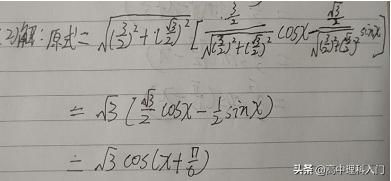 (2)解:原式=√((3/2)²+(√3/2)²)[(3/2)/√((3/2)²+(√3/2)²) cosx-(√3/2)/√((3/2)²+(√3/2)²) sinx]
=√3[√3/2 cosx-1/2 sinx)
=√3cos(x+π/6)
头条@高中理科入门